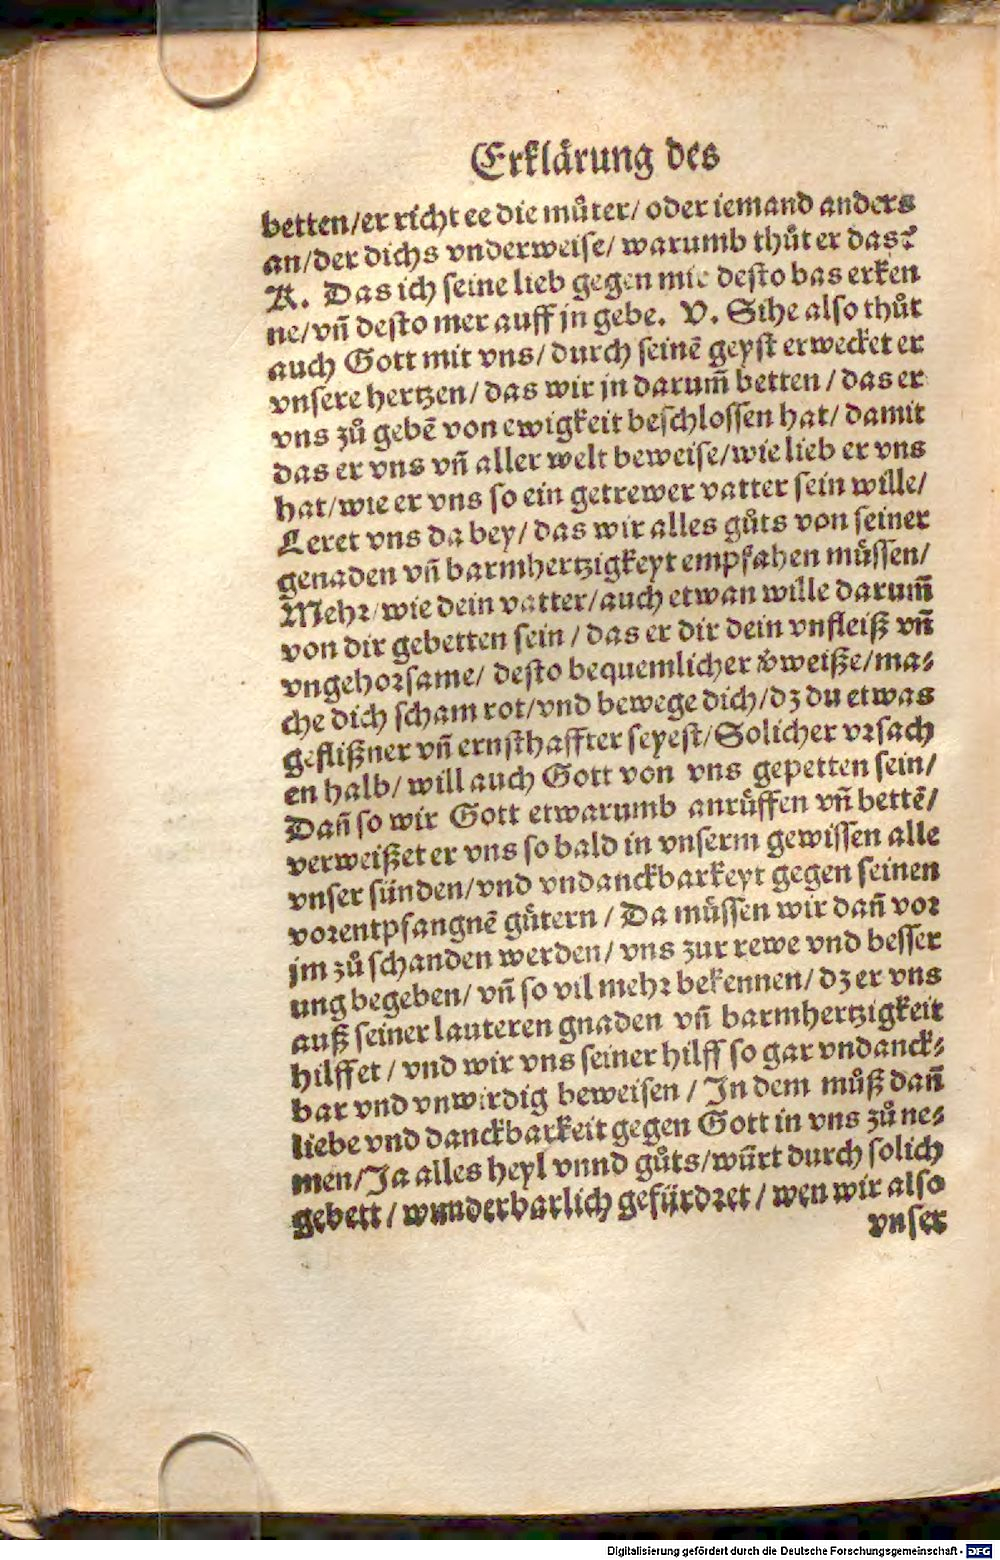 Erklärung des
betten/er richt ee die můter/ oder iemand anders
an/der dichs vnderweise/ warumb thůt er das?
K. Das ich seine lieb gegen mir desto bas erken
ne/vñ desto mer auff jn gebe. V. Sihe also thůt
auch Gott mit vns/ durch seinē geyst erwecket er
vnsere hertzen/ das wir jn darum̃ betten / das er
vns zů gebē von ewigkeit beschlossen hat/ damit
das er vns vñ aller welt beweise/wie lieb er vns
hat/wie er vns so ein getrewer vatter sein wille/
Leret vns da bey/ das wir alles gůts von seiner
genaden vñ barmhertzigkeyt empfahen müssen/
Mehr/wie dein vatter/auch etwan wille darum̃
von dir gebetten sein / das er dir dein vnfleiß vñ
vngehorsame/ desto bequemlicher v̈weiße/ma⸗
che dich scham rot/vnd bewege dich/dz du etwas
geflißner vñ ernsthaffter seyest/Solicher vrsach
en halb/ will auch Gott von vns gepetten sein/
Dañ so wir Gott etwarumb anrüffen vñ bettē/
verweißet er vns so bald in vnserm gewissen alle
vnser sünden/vnd vndanckbarkeyt gegen seinen
vorentpfangnē gůtern / Da müssen wir dañ vor
jm zů schanden werden/ vns zur rewe vnd besser
ung begeben/ vñ so vil mehr bekennen/ dz er vns
auß seiner lauteren gnaden vñ barmhertzigkeit
hilffet / vnd wir vns seiner hilff so gar vndanck⸗
bar vnd vnwirdig beweisen / In dem můß dañ
liebe vnd danckbarkeit gegen Gott in vns zů ne⸗
men/Ja alles heyl vnnd gůts/würt durch solich
gebett / wunderbarlich gefürdret / wen wir also
vnser
Digitalisierung gefördert durch die Deutsche Forschungsgemeinschaft - DFG